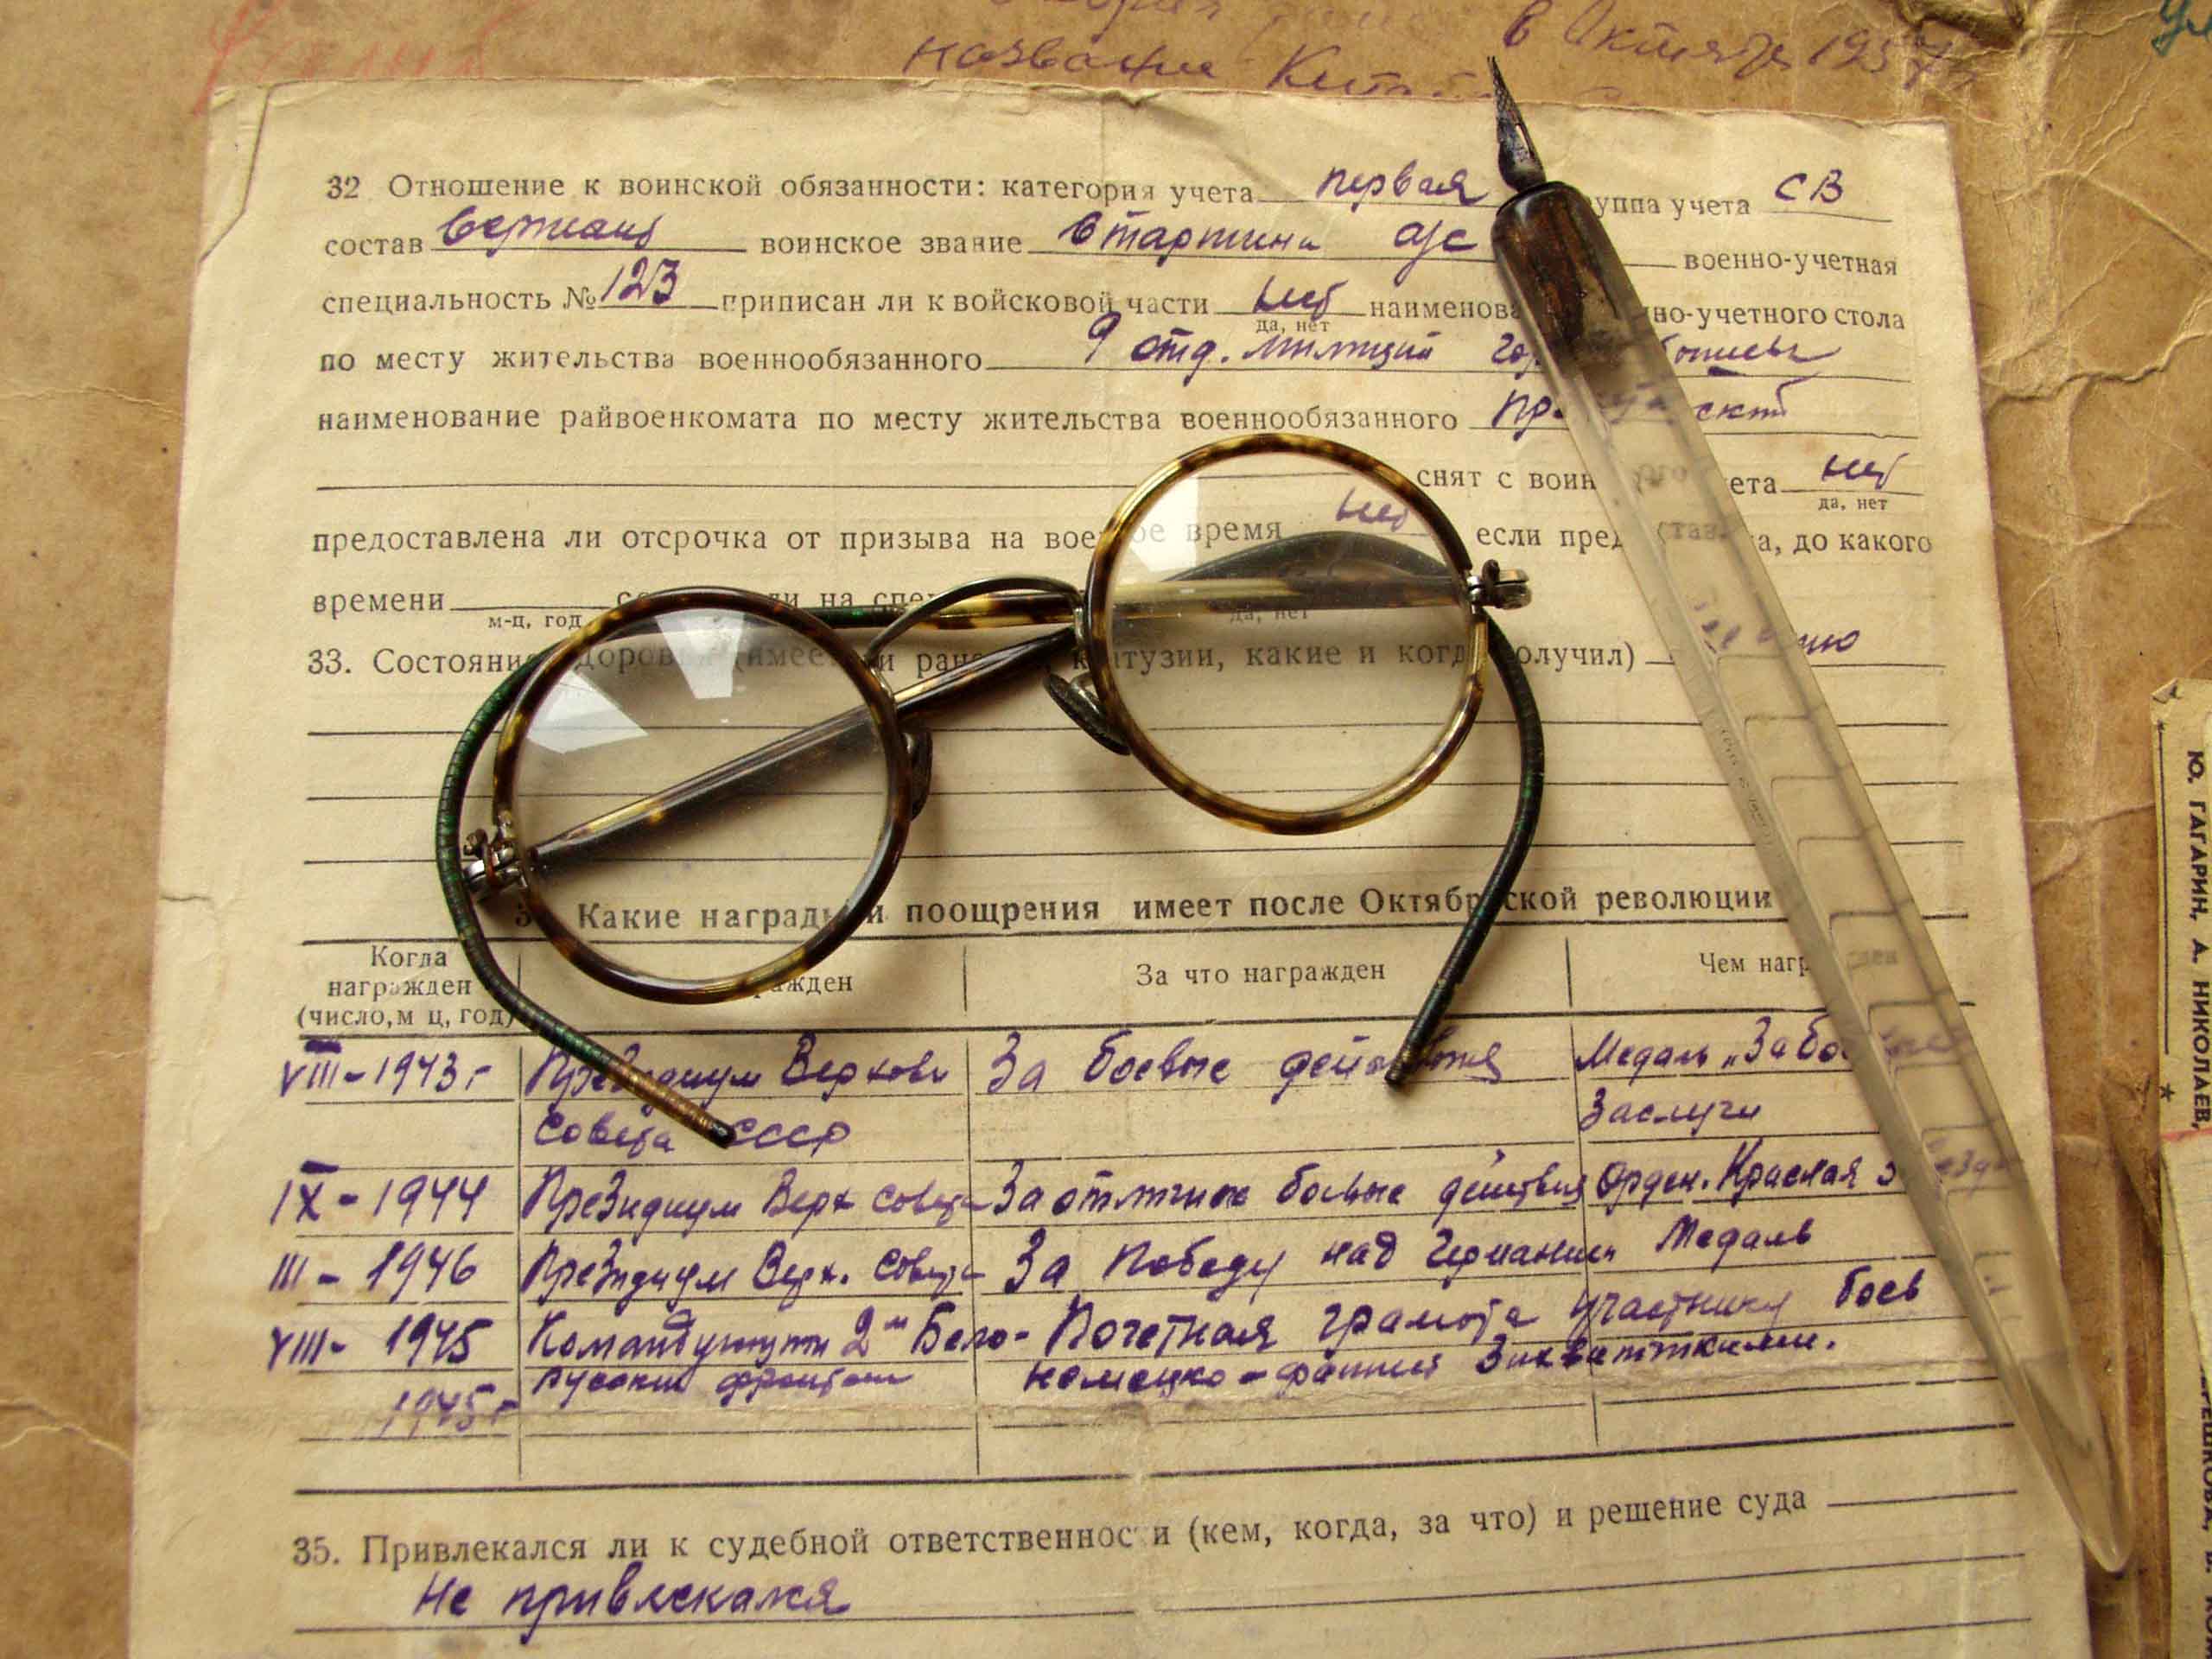 в Октябре 195
название
32 Отношение к воинской обязанности: категория учета первая уппа учета СВ
состав воинское звание Старшина а/с военно-учетная
специальность № 123 приписан ли к войсковой части нет наименова но-учетного стола
да, нет
по месту жительства военнообязанного 9 отд. милиции
наименование райвоенкомата по месту жительства военнообязанного
снят с воин ета нет
да, нет
предоставлена ли отсрочка от призыва на вое ое время нет если пред а, до какого
времени ли на спец
м-ц, год да, нет
33. Состояние здоровья (имеет ли ране контузии, какие и когда получил)
Какие награды и поощрения имеет после Октябрьской революции
Когда награжден (число, м ц, год) ражден За что награжден Чем нагр
VIII-1943г Президиум Верховн За боевые действия Медаль „За бое
Совета СССР Заслуги
IX-1944 Президиум Верх Совета За отличные боевые действия Орден. Красная з
III-1946 Президиум Верх. Совета За Победу над Германией Медаль
VIII-1945 Командующим 2м Бело- Почетная грамота участнику боев
1945г русским фронтом немецко-фашист Захватчиками.
35. Привлекался ли к судебной ответственности (кем, когда, за что) и решение суда
Не привлекался
Ю. ГАГАРИН, А. НИКОЛАЕВ,